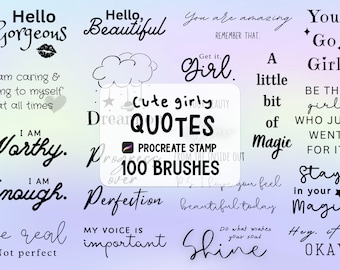 Hello
Gorgeous
Hello,
Beautiful
You are amazing
REMEMBER THAT.
You
Go
Girl
am caring &
ng to myself
at all times
Get it,
Girl.
A
little
bit
of
Magic
BE TH
girl
WHO JU
WENT
FOR IT
cute girly
QUOTES
PROCREATE STAMP
100 BRUSHES
I AM
Worthy.
Progress
over
Perfection
I AM
Enough.
I hope you feel
beautiful today
Stay
in your
Magic
e real
Not perfect
MY VOICE is
important
Do what makes
your soul
Shine
Hey, it
OKAY